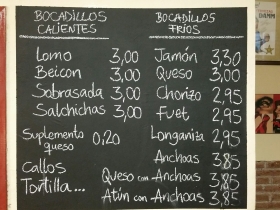 BOCADILLOS
CALIENTES
Lomo 3,00
Beicon 3,00
Sobrasada 3,00
Salchichas 3,00
Suplemento
queso 0,20
Callos
Tortilla...
BOCADILLOS
FRÍOS
Jamón 3,30
Queso 3,00
Chorizo 2,95
Fuet 2,95
Longaniza 2,95
Anchoas 3,85
Queso con Anchoas 3,85
Atún con Anchoas 3,85